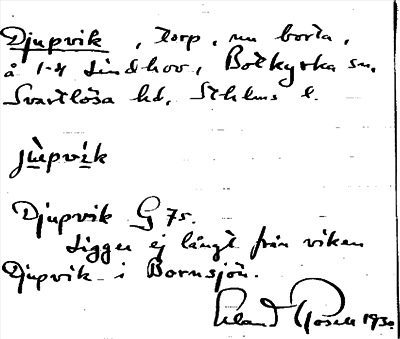 Djupvik, torp, nu borta,
å 1-4 Lindhov, Botkyrka sn,
Svartlösa hd, Sthlms l.
jùpvík
Djupvik G 75.
Ligger ej långt från viken
Djupvik i Bornsjön.
Erland Rosell 1930